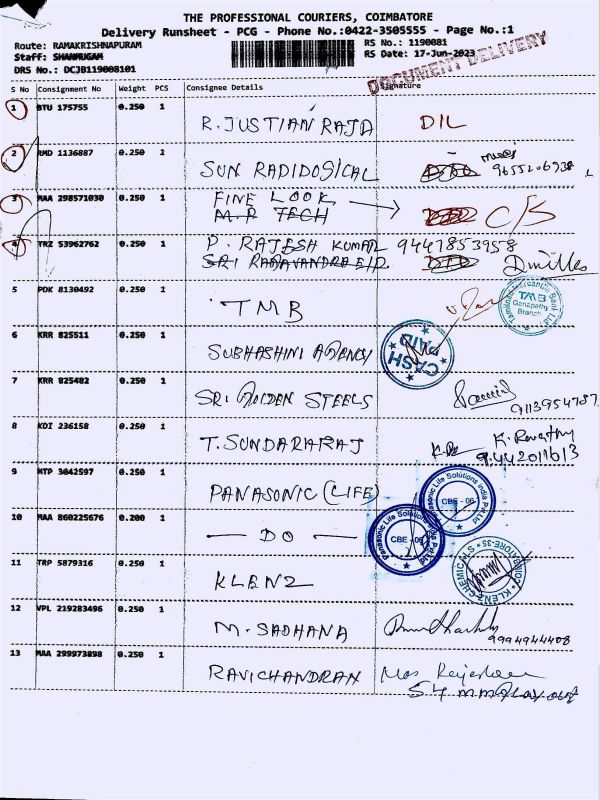 THE PROFESSIONAL COURIERS, COIMBATORE
Delivery Runsheet - PCG - Phone No.:0422-3505555 - Page No.:1
Route: RAMAKRISHNAPURAM RS No.: 1190081
Staff: SHANMUGAM RS Date: 17-Jun-2023
DRS No.: DCJB119008101
DOCUMENT DELIVERY
S No Consignment No Weight PCS Consignee Details Signature
1 BTU 175755 0.250 1
R. JUSTIAN RAJA DIL
2 RMD 1136887 0.250 1
SUN RADIDOGICAL
3 MAA 298571030 0.250 1 FINE LOOK
M.P TECH C/S
4 TRZ 53962762 0.250 1 P. RAJESH KUMAR 94478 53958
5 PDK 8130492 0.250 1
TMB
Tamilnad Mercantile Bank Ltd.
TMB
Ganapathy
Branch
6 KRR 825511 0.250 1
SUBHASHINI AGENCY
CASH
PAID
7 KRR 825482 0.250 1
SRI GOLDEN STEELS
8 KDI 236158 0.250 1
T. SUNDARARAJ K. Revathy
9442011613
9 MTP 3042597 0.250 1
PANASONIC (LIFE)
Panasonic Life Solutions India Pvt Ltd
CBE - 06
10 MAA 860225676 0.200 1
DO
Panasonic Life Solutions India Pvt Ltd
CBE - 06
11 TRP 5879316 0.250 1
KLENZ
KLENZ CHEMICALS COIMBATORE-35
12 VPL 219283496 0.250 1
M. SADHANA
9994944408
13 MAA 299973898 0.250 1
RAVICHANDRAN